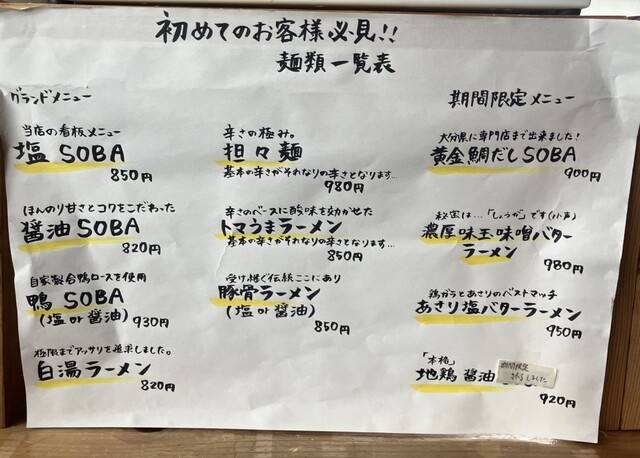 初めてのお客様必見!!
麺類一覧表
グランドメニュー
当店の看板メニュー
塩 SOBA
850円
ほんのり甘さとコクをこだわった
醤油 SOBA
820円
自家製合鴨ロースを使用
鴨 SOBA
(塩 or 醤油) 930円
極限までアッサリを追求しました。
白湯ラーメン
820円
辛さの極み。
担々麺
基本の辛さがそれなりの辛さとなります…
980円
辛さのベースに酸味を効かせた
トマうまラーメン
基本の辛さがそれなりの辛さとなります…
850円
受け継ぐ伝統ここにあり
豚骨ラーメン
(塩 or 醤油)
850円
期間限定メニュー
大分県に専門店まで出来ました!
黄金鯛だしSOBA
900円
秘密は…「しょうが」です(小声)
濃厚味玉味噌バター
ラーメン
980円
鶏ガラとあさりのベストマッチ
あさり塩バターラーメン
950円
「本格」
地鶏 醤油
期間限定
終了しました
920円